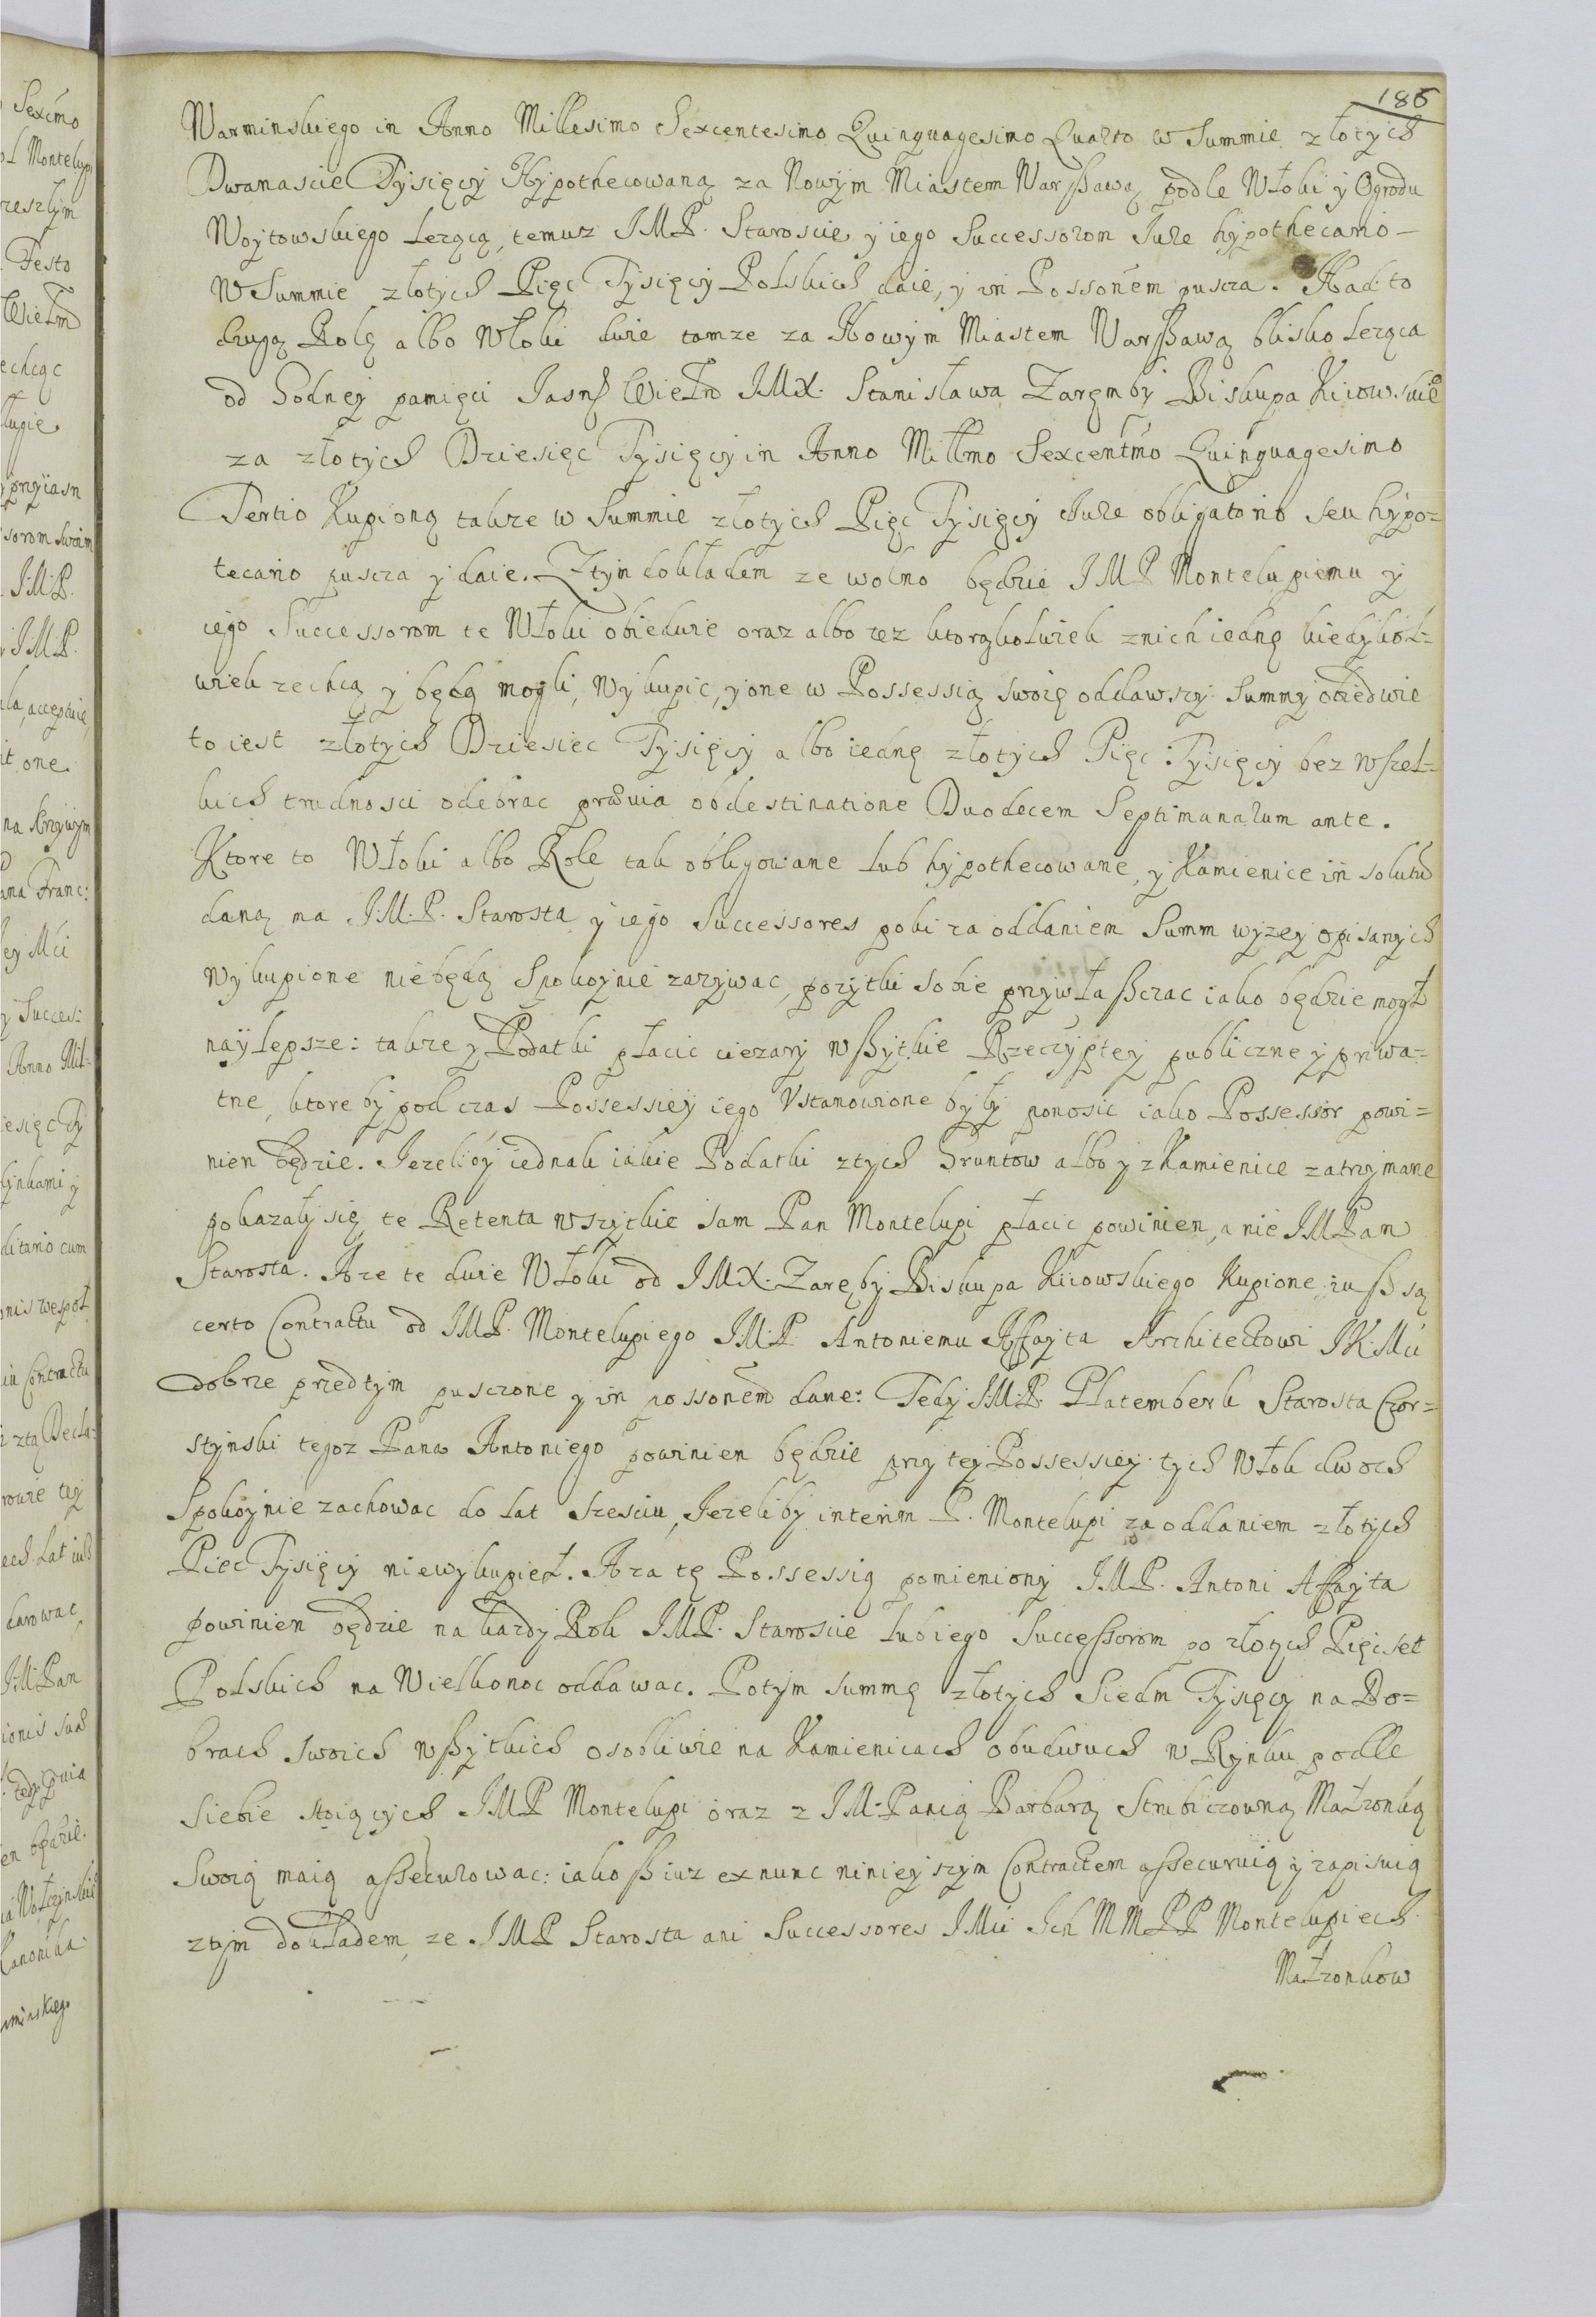 186
Warminskiego in Anno Millesimo Sexcentesimo Quinquagesimo Quarto w Summie złotych
Dwanascie Tysięcy Hypothecowaną za Nowym Miastem Warßawą podle Włoki y Ogrodu
Woytowskiego Lezącą, temuz JMP. Staroscie y iego Successorom Jure hypothecario –
W Summie złotych Pięc Tysięcy Polskich daie, y in Possonem puscza. Nad to
drugą Rolę albo Włoki dwie tamze za Nowym Miastem Warßawą blisko Lezącą
od Godney pamięci Jasn Wielm JMX. Stanisława Zaręmby Biskupa Kiiowskie
za złotych Dziesięc Tysięcy in Anno Millmo Sexcentmo Quinquagesimo
Tertio Kupioną takze w Summie złotych Pięc Tysięcy Jure obligatorio seu hypo=
tecario puscza y daie. Ztym dokładem ze wolno będzie JMP Montelupiemu y
iego Successorom te Włoki obiedwie oraz albo tez ktorążkolwiek znich iednę kiedykol=
wiek zechcą y będą mogli, Wykupic, y one w Possessią swoię oddawszy Summy obiedwie
to iest złotych Dziesiec Tysięcy albo iednę złotych Pięc Tysięcy bez wszel=
kich trudnosci odebrac prævia obdestinatione Duodecem Septimanarum ante.
Ktore to Włoki albo Role tak obligowane lub hypothecowane, y Kamienice in solutu
daną ma J.M.P. Starosta y iego Successores poki za oddaniem Summ wyzey opisanych
Wykupione niebędą Spokoynie zazywac, pozytki sobie przywłaßczac iako będzie mogł
naylepsze: takze y Podatki płacic ciezary wßytkie Rzeczyptey publiczne y priwa=
tne, ktore by pod czas Possessiey iego Vstanowione były ponosic iako Possessor powi=
nien będzie. Jezeliby iednak iakie Podatki ztych Gruntow albo y z Kamienice zatrzymane
pokazały się te Retenta wszytkie sam Pan Montelupi płacic powinien, a nie JMPan
Starosta. A ze te dwie Włoki od JMX. Zaręby Biskupa Kiiowskiego Kupione iuß są
certo Contractu od JMP. Montelupiego JM.P. Antoniemu Affayta Architectowi JK.Mci
dobrze przedtym pusczone y in possonem dane: Tedy J.M.P. Platemberk Starosta Czor=
stynski tegoz Pana Antoniego powinien będzie przy tey Possessiey tych Włok dwoch
Spokoynie zachowac do lat szesciu, Jezeliby interim P. Montelupi za oddaniem złotych
Piec Tysięcy niewykupieł. A za tę Possessią pomieniony JMP. Antoni Affayta
powinien będzie na kazdy Rok JMP. Staroscie lub iego Succeßorom po złotych Pięcset
Polskich na Wielkonoc oddawac. Potym summę złotych Siedm Tysięcy na Do=
brach swoich wßytkich osobliwie na Kamienicach obudwuch w Rynku podle
siebie stoiących JMP Montelupi oraz z JM. Panią Barbarą Strubiczowną Małzonką
Swoią maią aßecurowac: iakoß iuz ex nunc ninieyszym Contractem aßecuruią y zapisuią
ztym dokładem, ze JMP Starosta ani Successores JMci Ich MMPP Montelupiech
Małzonkow